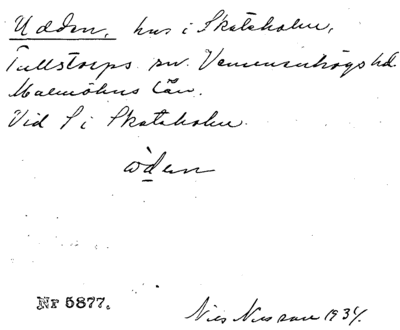 Udden, hus i Skateholm,
Tullstorps sn. Vemmenhögs hd.
Malmöhus Län.
Vid S i Skateholm.
òden
Nr 5877.
Nils Nilsson 1934.